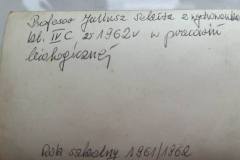 Profesor Juliusz z wychowanką
kl. IV C 1962 w pracowni
biologicznej
Rok szkolny 1961/1962